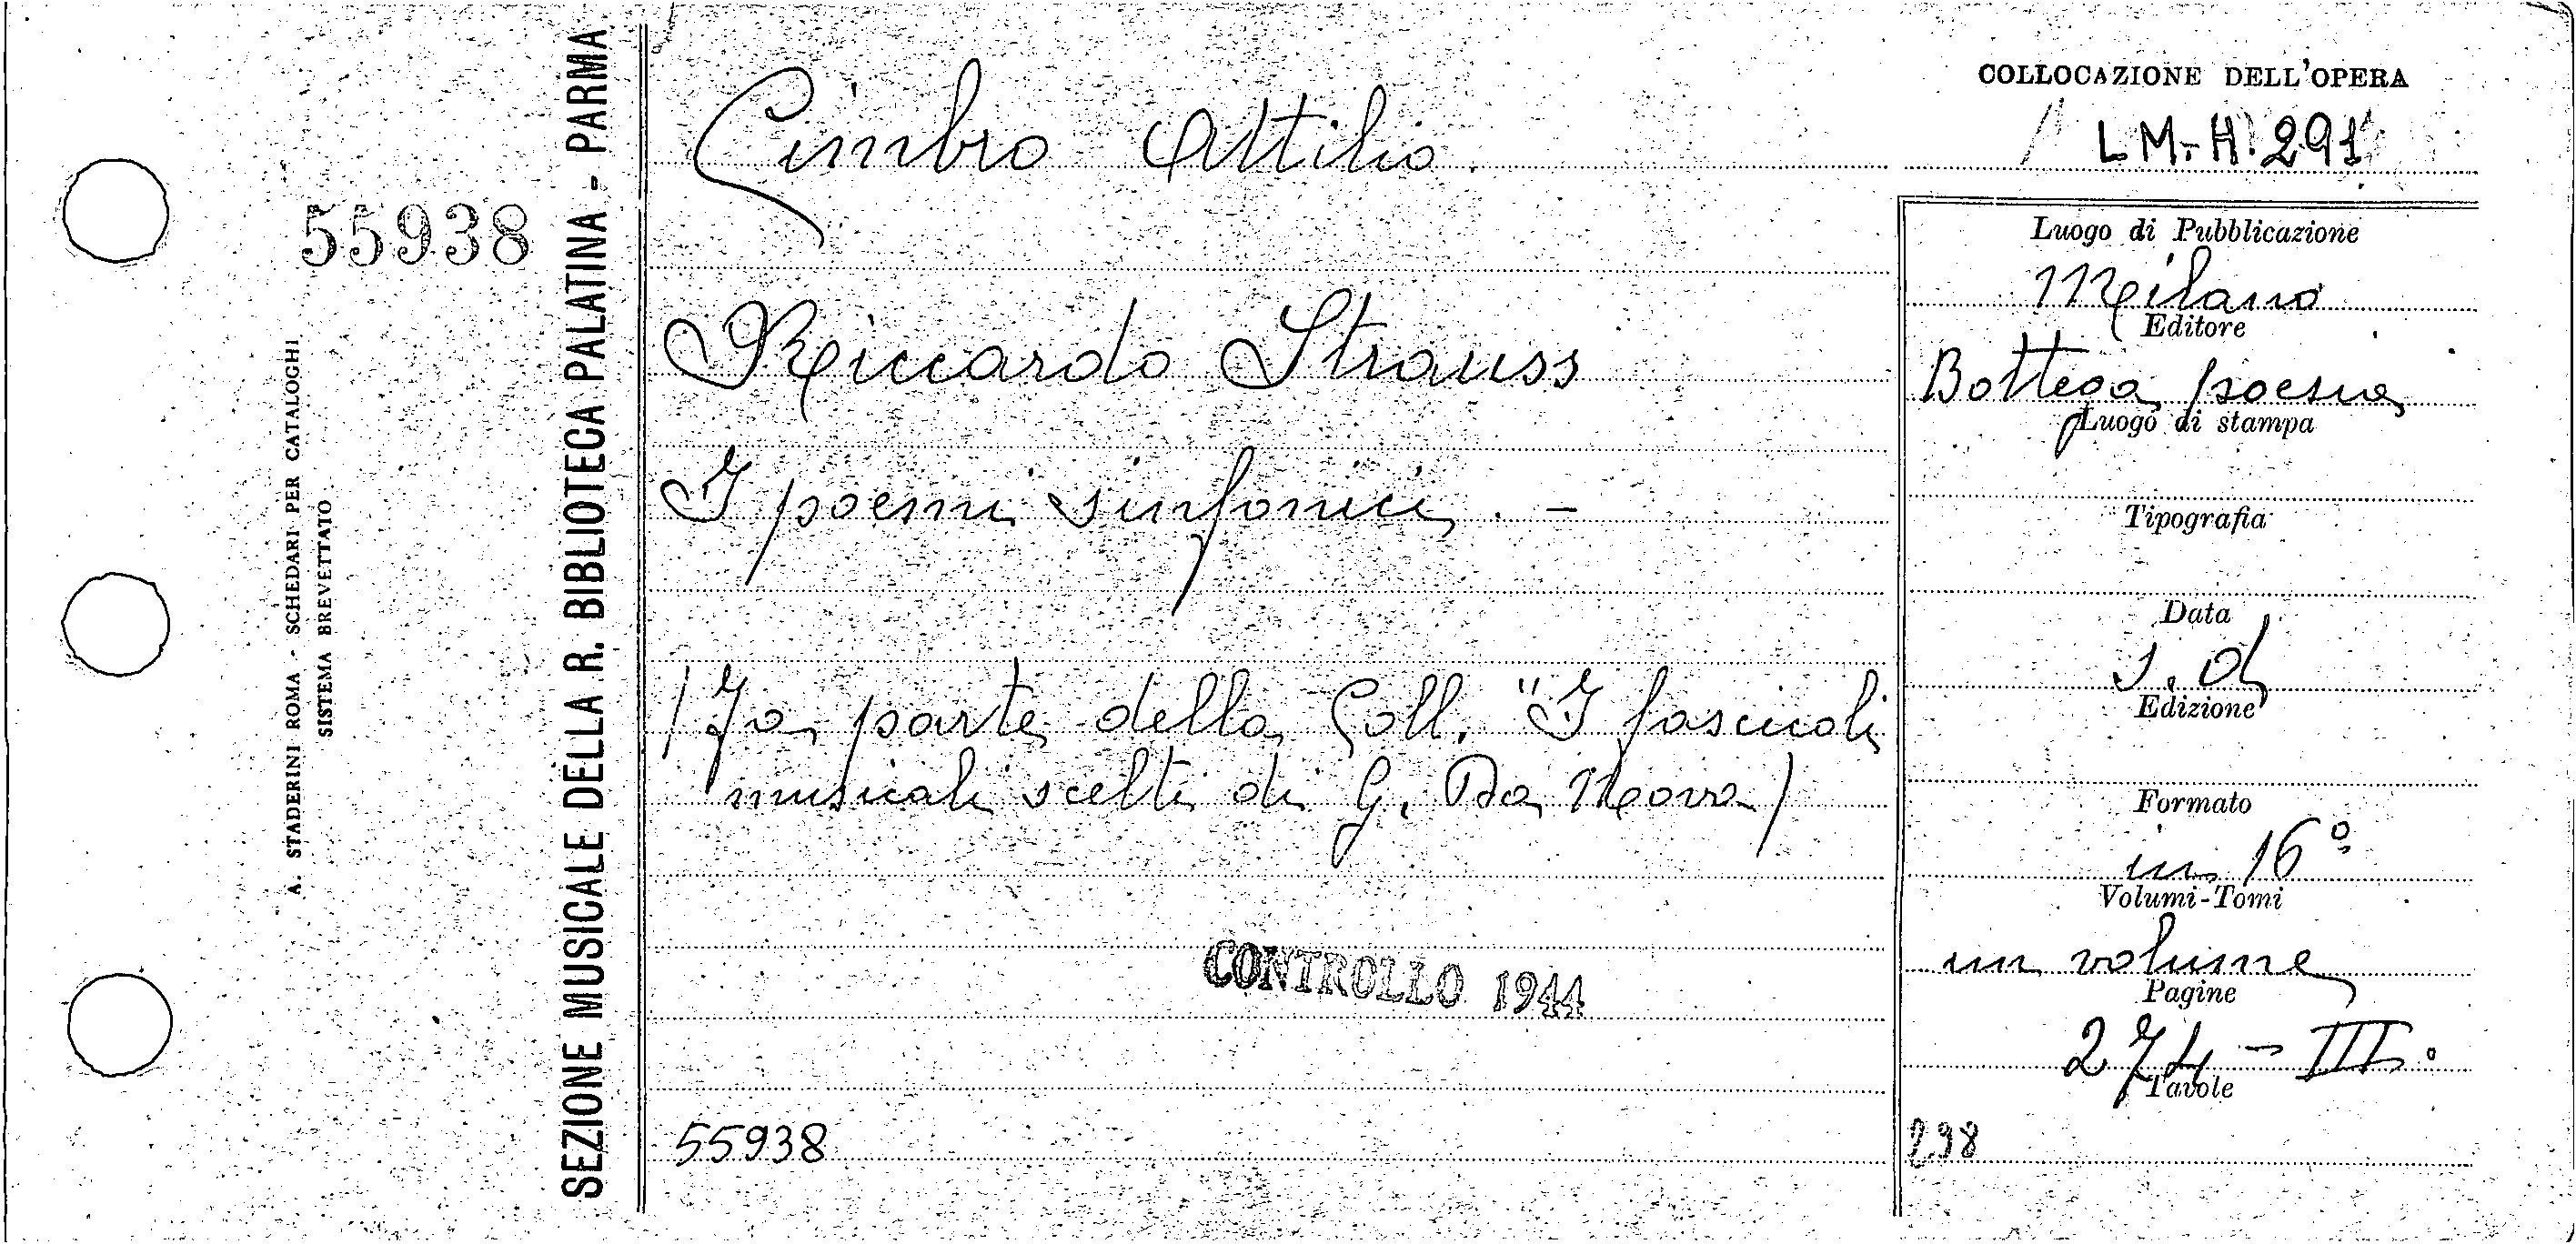 Cimbro Attilio
COLLOCAZIONE DELL'OPERA
L M.-H. 291
55938
A. STADERINI ROMA - SCHEDARI PER CATALOGHI
SISTEMA BREVETTATO
SEZIONE MUSICALE DELLA R. BIBLIOTECA PALATINA - PARMA
Riccardo Strauss
I poemi sinfonici. -
(Fa parte della Coll. "I fascicoli
musicali scelti di G. Da Nova)
CONTROLLO 1944
55938
Luogo di Pubblicazione
Milano
Editore
Bottega poesia
Luogo di stampa
Tipografia
Data
s.d
Edizione
Formato
in 16º
Volumi-Tomi
un volume
Pagine
274 - III.
Tavole
238